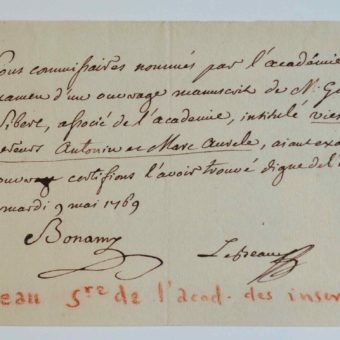 Nous commissaires nommés par l'académie
examen d'un ouvrage manuscrit de Mr. Ga
Sibert, associé de l'academie, intitulé vies
pereurs Antonin et Marc Aurele, aiant exa
ouvrage certifions l'avoir trouvé digne de l'i
mardi 9 mai 1769
Bonamy Lebeau
eau Sre de l'acad. des inscr